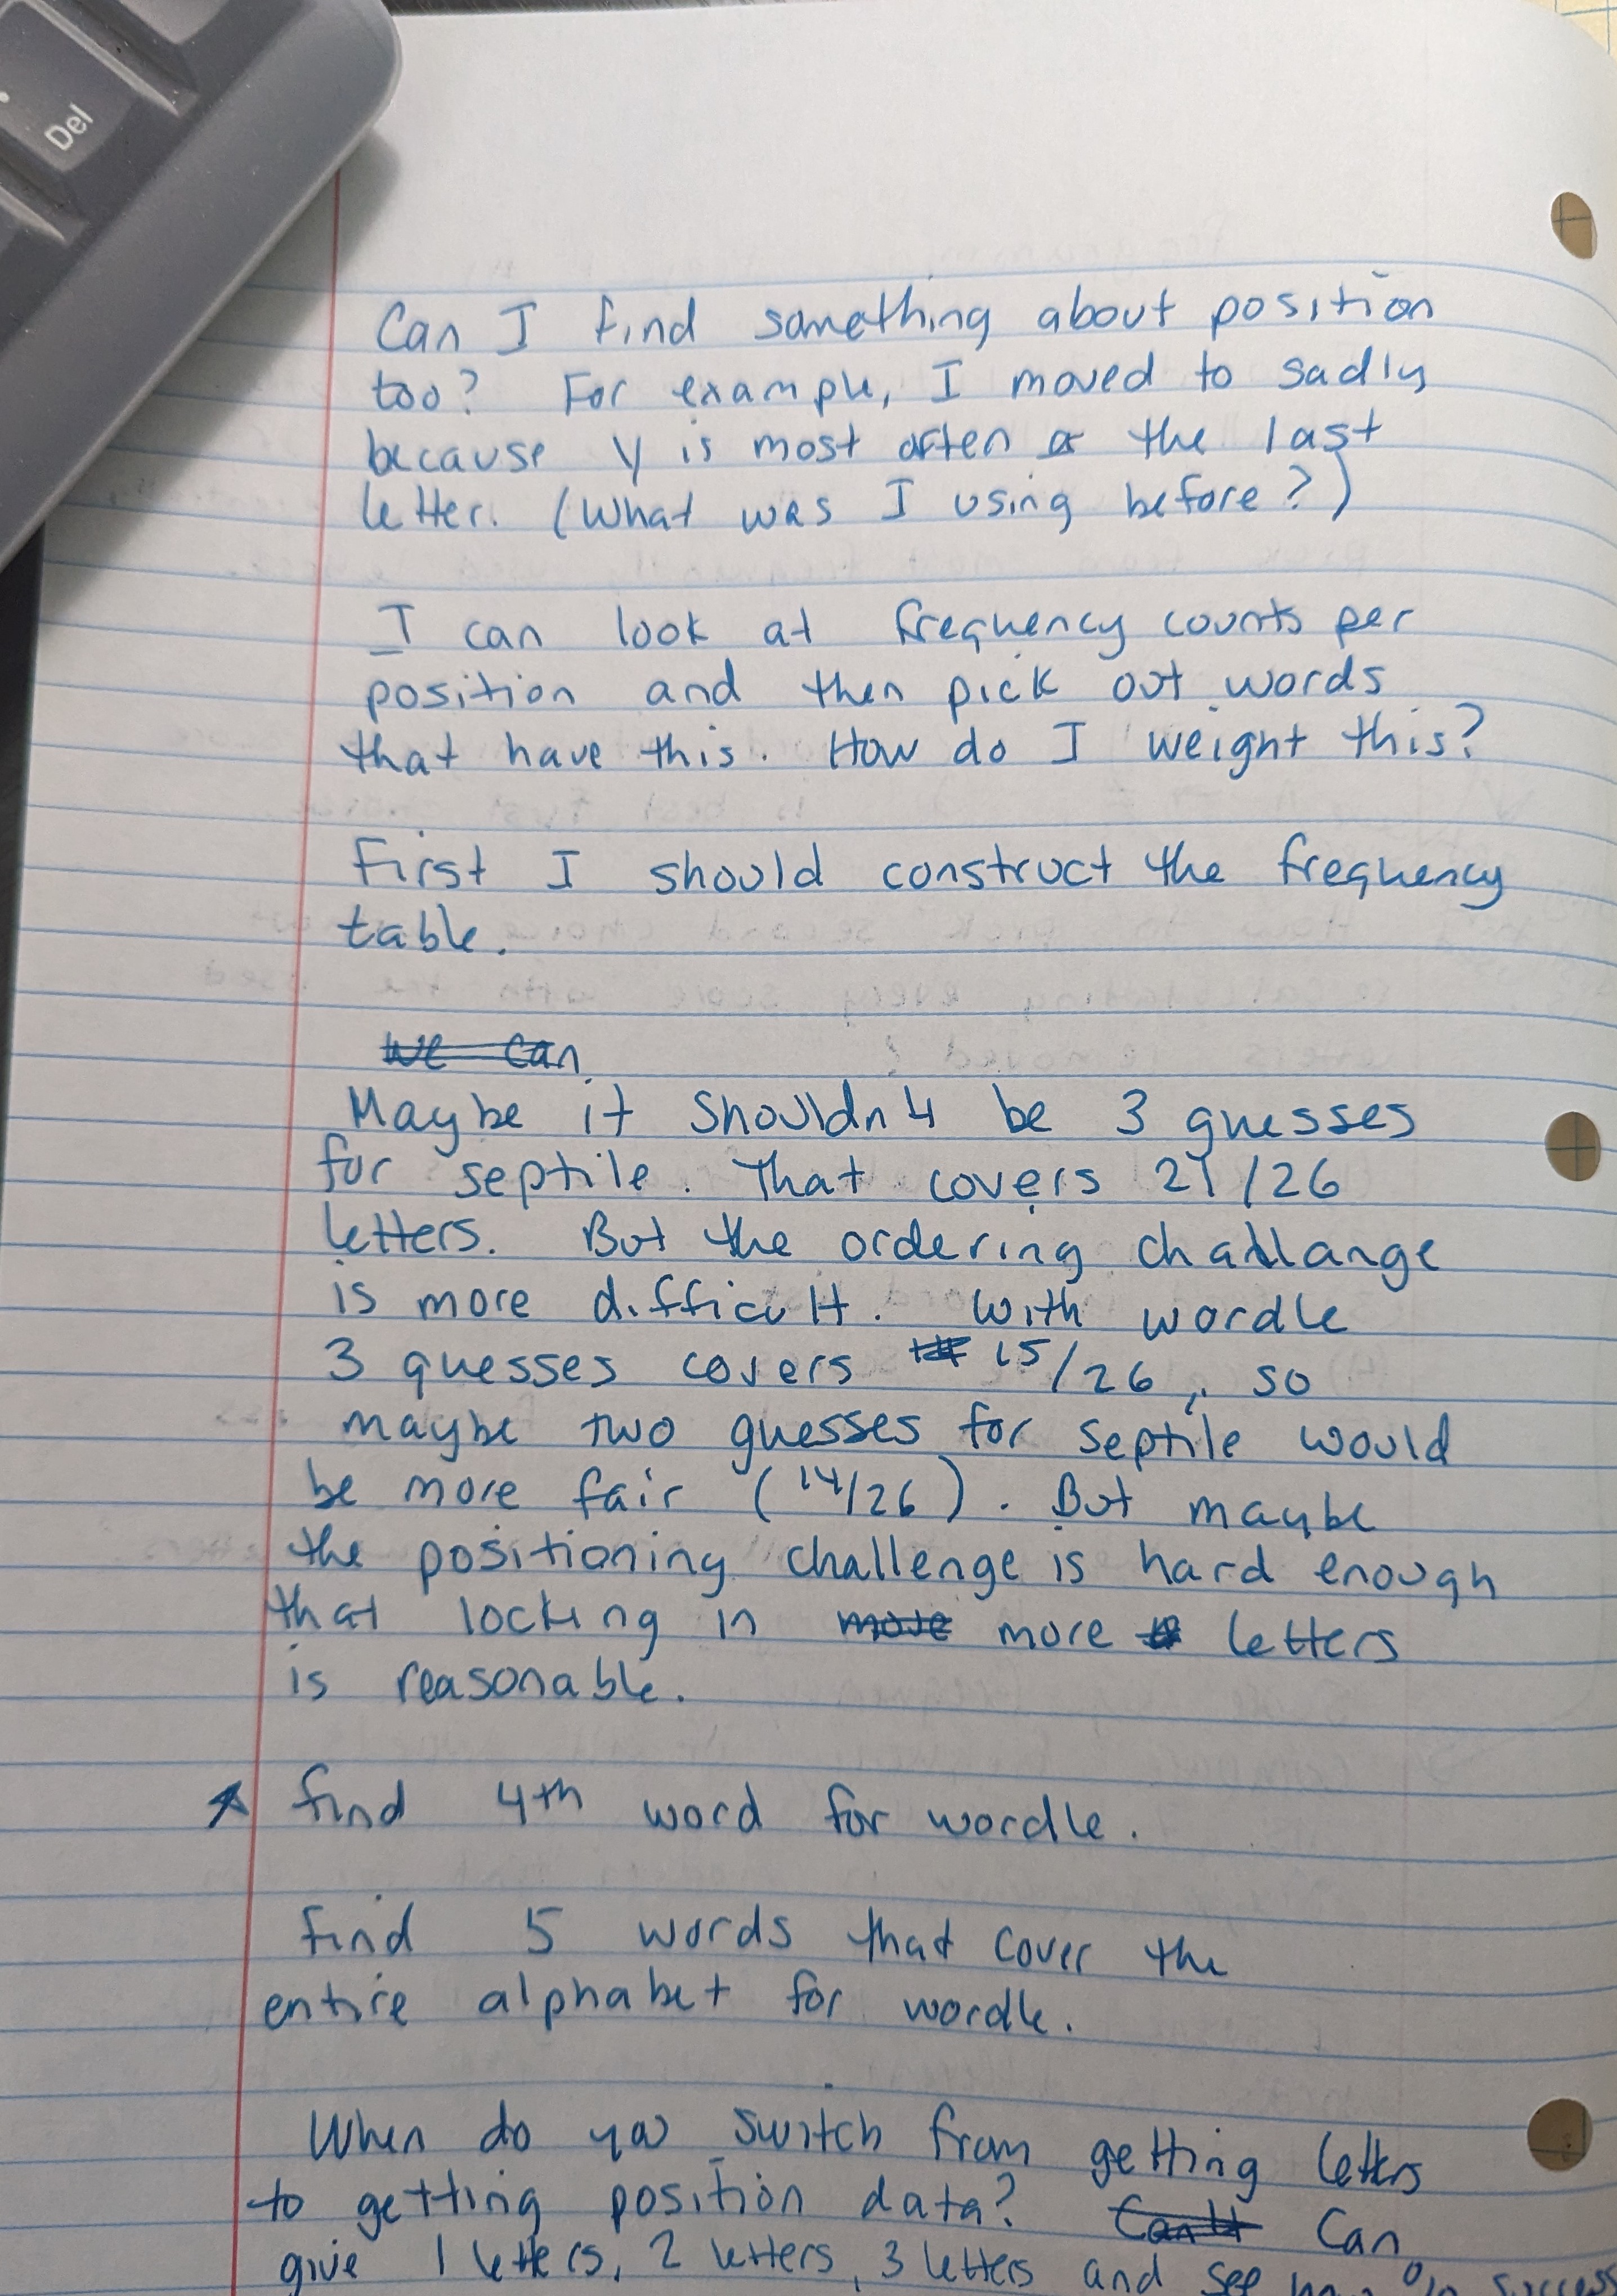 Del
Can I find something about position
too? For example, I moved to sadly
because y is most often the last
letter. (What was I using before?)
I can look at frequency counts per
position and then pick out words
that have this. How do I weight this?
First I should construct the frequency
table.
We can
Maybe it shouldn't be 3 guesses
for septile. That covers 21/26
letters. But the ordering challange
is more difficult. With wordle
3 guesses covers 15/26, so
maybe two guesses for septile would
be more fair (14/26). But maybe
the positioning challenge is hard enough
that locking in more more letters
is reasonable.
find 4th word for wordle.
find 5 words that cover the
entire alphabet for wordle.
When do you switch from getting letters
to getting position data? Can't Can
give 1 letters, 2 letters, 3 letters and see